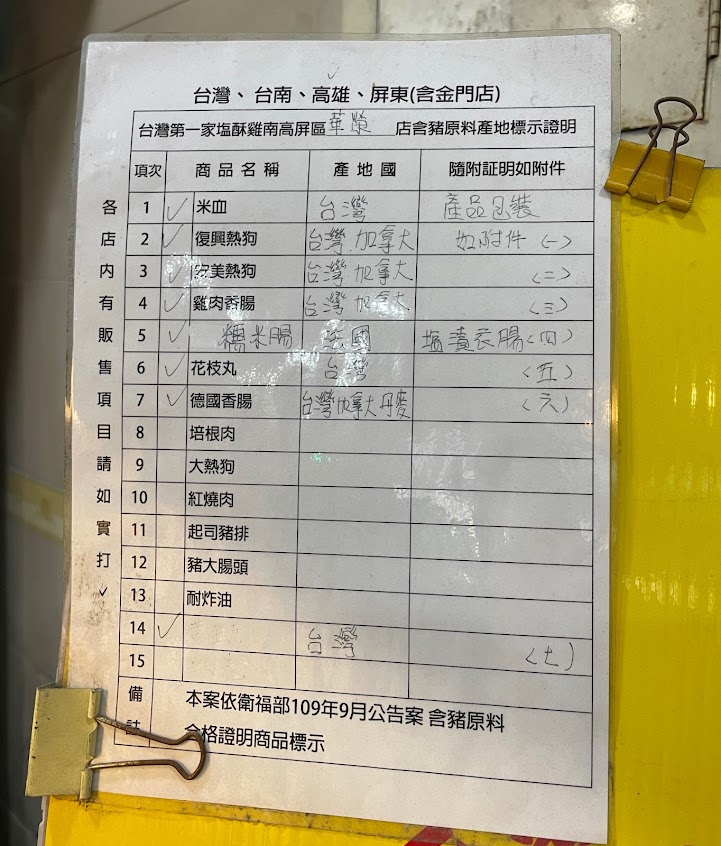 台灣、台南、高雄、屏東(含金門店)
台灣第一家塩酥雞南高屏區華榮店含豬原料產地標示證明
項次 商品名稱 產地國 隨附証明如附件
各店內有販售項目請如實打✓
1 ✓ 米血 台灣 產品包裝
2 ✓ 復興熱狗 台灣 加拿大 如附件(一)
3 ✓ 安美熱狗 台灣 加拿大 (二)
4 ✓ 雞肉香腸 台灣 加拿大 (三)
5 ✓ 糯米腸 法國 塩漬衣腸(四)
6 ✓ 花枝丸 台灣 (五)
7 ✓ 德國香腸 台灣加拿大丹麥 (六)
8 培根肉
9 大熱狗
10 紅燒肉
11 起司豬排
12 豬大腸頭
13 耐炸油
14 ✓ 台灣 (七)
15
備註 本案依衛福部109年9月公告案 含豬原料
合格證明商品標示